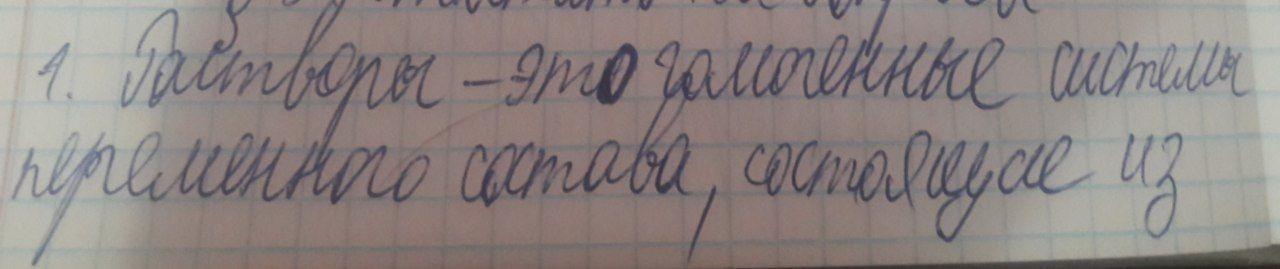 1. Растворы – это гомогенные системы
переменного состава, состоящие из